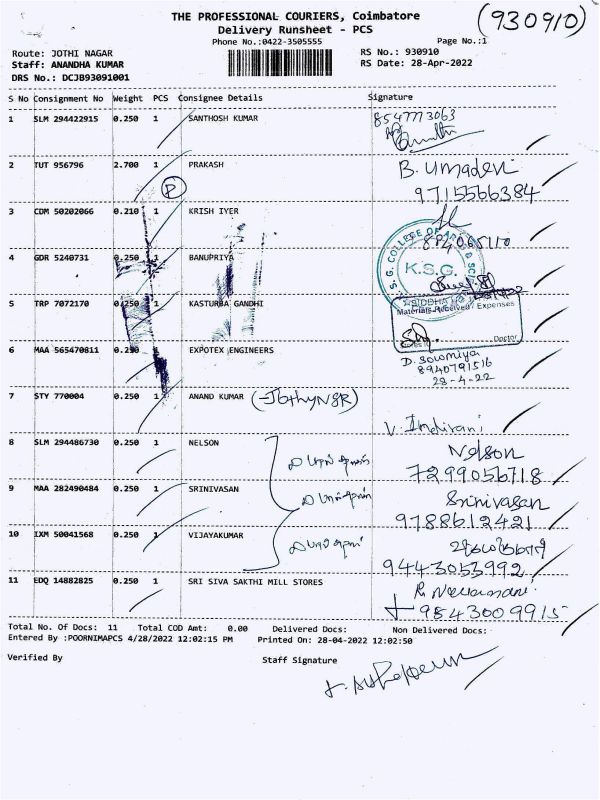 THE PROFESSIONAL COURIERS, Coimbatore
(930910)
Delivery Runsheet - PCS
Phone No.:0422-3505555
Page No.:1
Route: JOTHI NAGAR
RS No.: 930910
Staff: ANANDHA KUMAR
RS Date: 28-Apr-2022
DRS No.: DCJB93091001
S No Consignment No Weight PCS Consignee Details Signature
1 SLM 294422915 0.250 1 SANTHOSH KUMAR 8547773063
2 TUT 956796 2.700 1 PRAKASH B. Umadevi
9715566384
P
3 CDM 50202066 0.210 1 KRISH IYER
4 GDR 5240731 0.250 1 BANUPRIYA
K.S.G.
5 TRP 7072170 0.250 1 KASTURBA GANDHI
Materials Received / Expenses
Doctor
6 MAA 565470811 0.250 EXPOTEX ENGINEERS
D. Sowmiya
8940791516
28-4-22
7 STY 770004 0.250 1 ANAND KUMAR (JothyNGR) V. Indirani
8 SLM 294486730 0.250 1 NELSON Nelson
7299056718
9 MAA 282490484 0.250 1 SRINIVASAN Srinivasan
9788612421
10 IXM 50041568 0.250 1 VIJAYAKUMAR
9443053992
11 EDQ 14882825 0.250 1 SRI SIVA SAKTHI MILL STORES
9843009915
Total No. Of Docs: 11 Total COD Amt: 0.00 Delivered Docs: Non Delivered Docs:
Entered By :POORNIMAPCS 4/28/2022 12:02:15 PM Printed On: 28-04-2022 12:02:50
Verified By Staff Signature